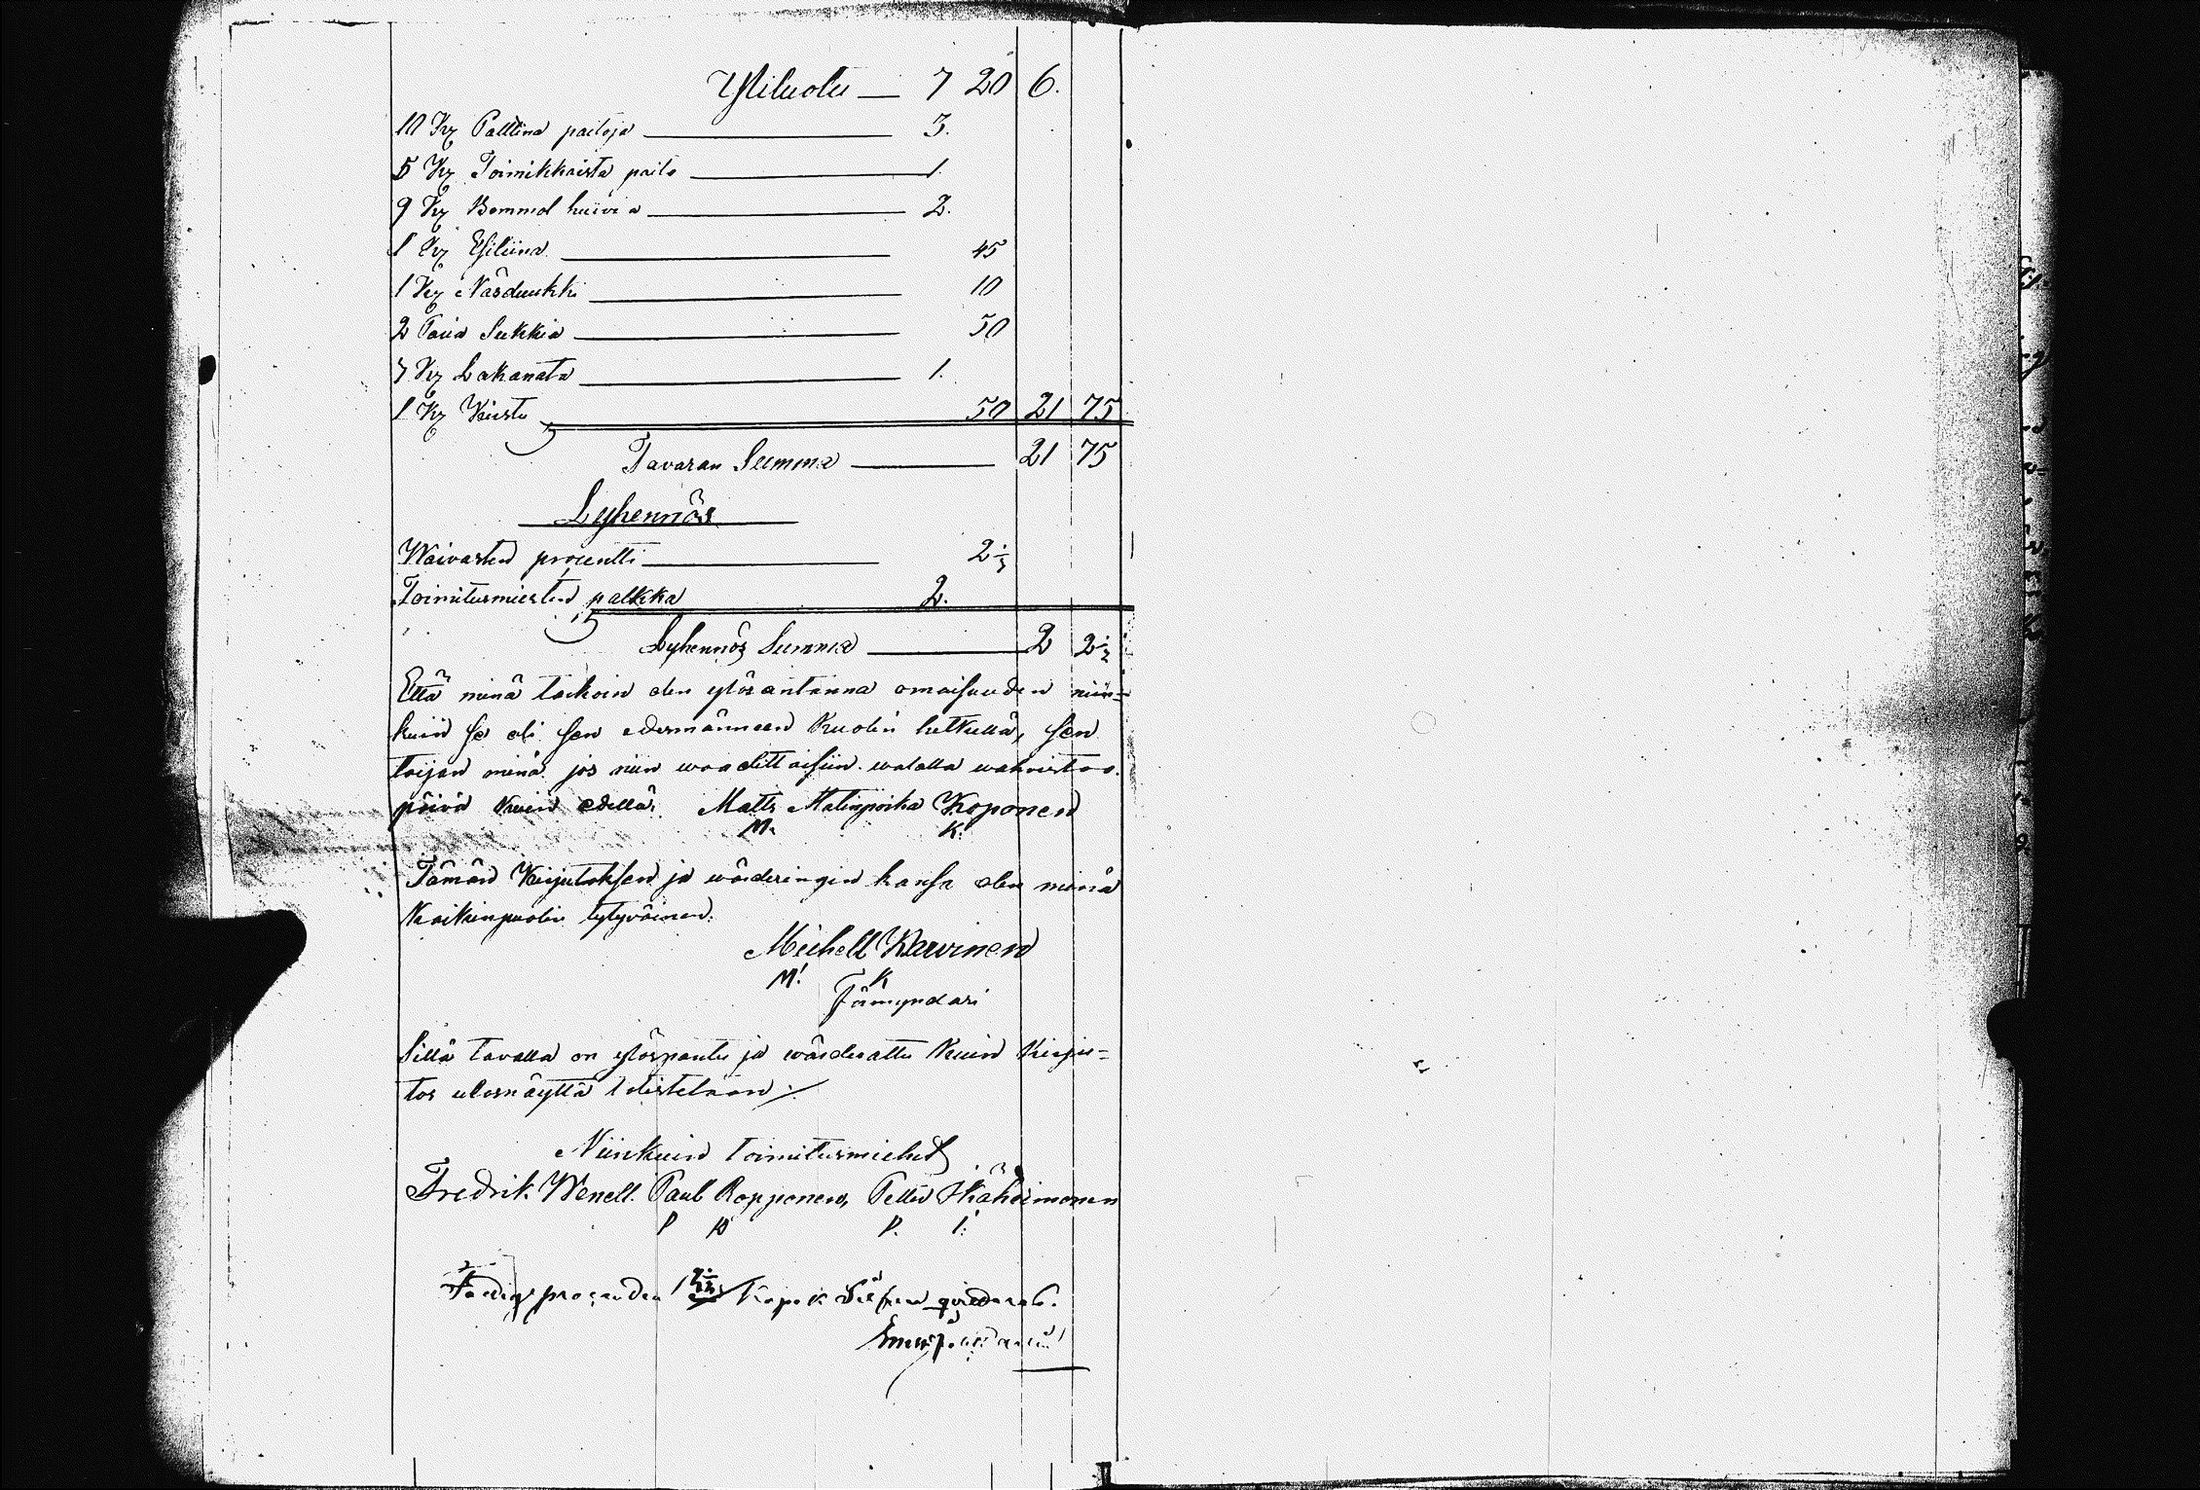 Yliluotu — 7 20 6.
10 Kz Palttina paitoja — 3.
5 Kz Toimikkaista paito — 1.
9 Kz Bommol huivia — 2.
1 Kz Esiliina — 45
1 Kz Näsduukki — 10
2 Paria Sukkia — 50
7 Kz Lakanata — 1.
1 Kz Kirstu — 50 21 75
Tavaran Summa — 21 75
Lyhennös
Waivasten procentti — 2½
Toimitusmiesten palkka 2.
Lyhennös Summa — 2 2½
Että minä tarkoin olen ylösantanna omaisuuden niin=
kuin se oli sen edesmänneen kuolin hetkellä, sen
taijan minä jos niin waadittaisiin walalla wahvistaa.
päivä kuin edellä. Matts Matinpoika Koponen
M. K.
Tämän Kirjutoksen ja wärderingin kansa olen minä
Kaikinpuolin tytyväinen.
Michell Karvinen
M. K
Förmyndari
Sillä tavalla on ylöspantu ja wärderattu kuin Kirju=
tos ulosnäyttä todistetaan ./.
Niinkuin toimitusmiehet
Fredrik Wenell. Paul Ropponen, Petter Ikäheimonen
P R P. I.
Fattigprocenden 2½ Kopek Silfver qvitteras.